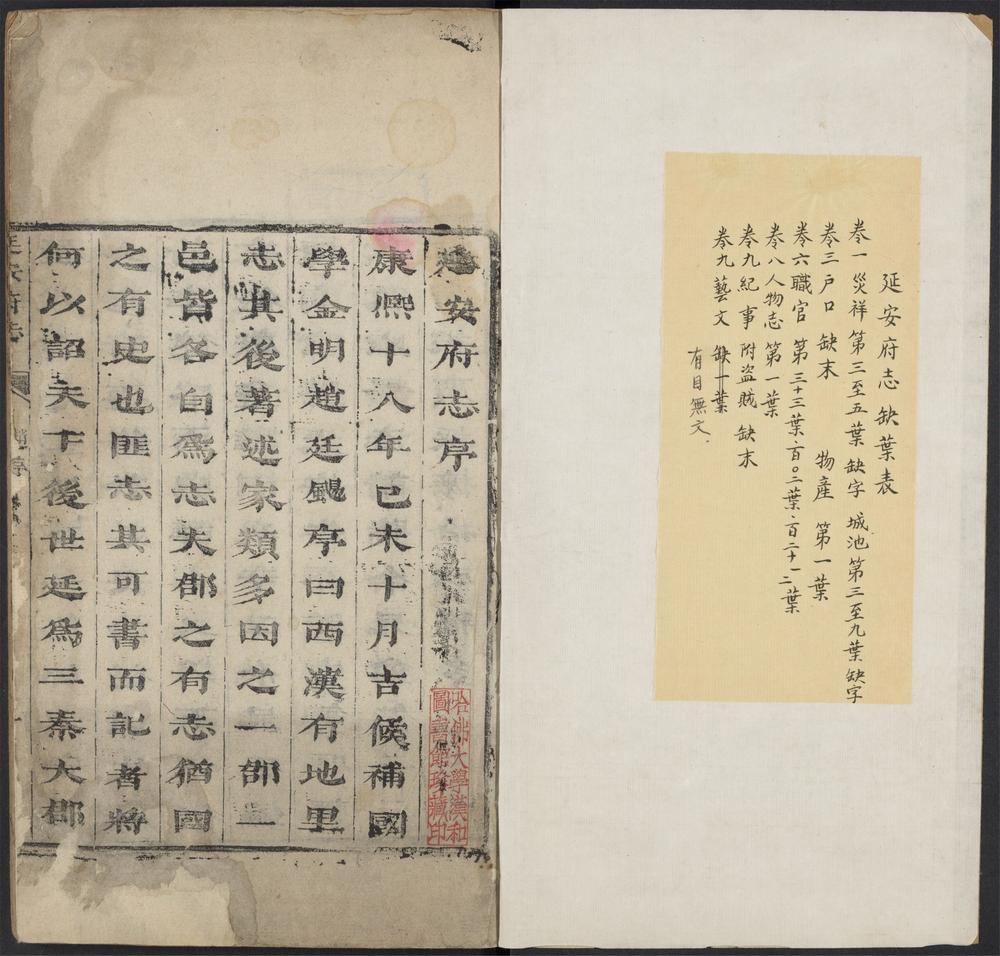 延安府志 缺葉表
卷一 災祥 第三至五葉 缺字 城池 第三至九葉 缺字
卷三 戶口 缺末 物產 第一葉
卷六 職官 第三十三葉、百〇二葉、百二十一二葉
卷八 人物志 第一葉
卷九 紀事 附盜賊 缺末
卷九 藝文 缺一葉
有目無文.
延安府志序
康熙十八年己未十月吉候補國
學金明趙廷颺序曰西漢有地里
志其後著述家類多因之一郡一
邑皆各自為志夫郡之有志猶國
之有史也匪志其可書而記者將
何以詔天下後世延為三秦大郡
延安府志
序
哈佛大學漢和
圖書館珍藏印